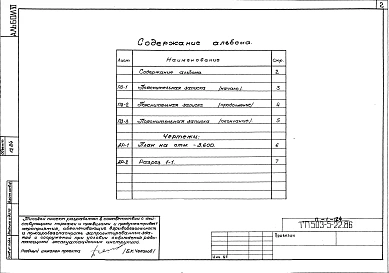 2
АЛЬБОМ VI
Содержание альбома.
Лист Наименование Стр.
Содержание альбома 2
ПЗ-1 Пояснительная записка (начало) 3
ПЗ-2 Пояснительная записка (продолжение) 4
ПЗ-3 Пояснительная записка (окончание) 5
Чертежи:
АР-1 План на отм -3.600. 6
АР-2 Разрез 1-1. 7
Типовой проект разработан в соответствии с дей-
ствующими нормами и правилами и предусматривает
мероприятия, обеспечивающие взрывобезопасность
и пожаробезопасность запроектированных зда-
ний и сооружений при условии соблюдения
эксплуатационных инструкций.
Главный инженер проекта
ТП 503-5-22.86
Привязан
Инв. №